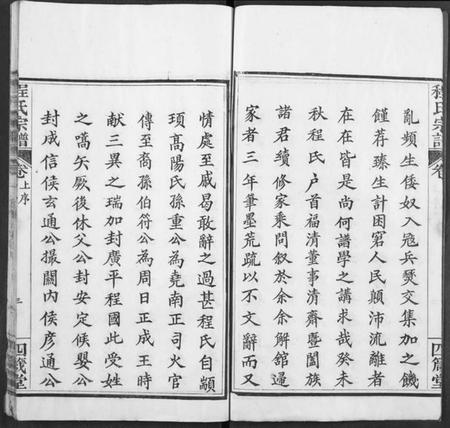 亂頻生倭奴入寇兵燹交集加之饑
饉荐臻生計困窘人民顛沛流離者
在在皆是尚何譜學之講求哉癸未
秋程氏戶首福清董事清齋暨闔族
諸君續修家乘問叙於余余解舘過
家者三年筆墨荒疏以不文辭而又
四箴堂
程氏宗譜
卷上序
四箴堂
情處至戚曷敢辭之過甚程氏自顓
頊高陽氏孫重公為堯南正司火官
傳至裔孫伯符公為周日正成王時
献三異之瑞加封廣平程國此受姓
之嚆矢厥後休父公封安定候嬰公
封成信候玄通公撮關內候彥通公